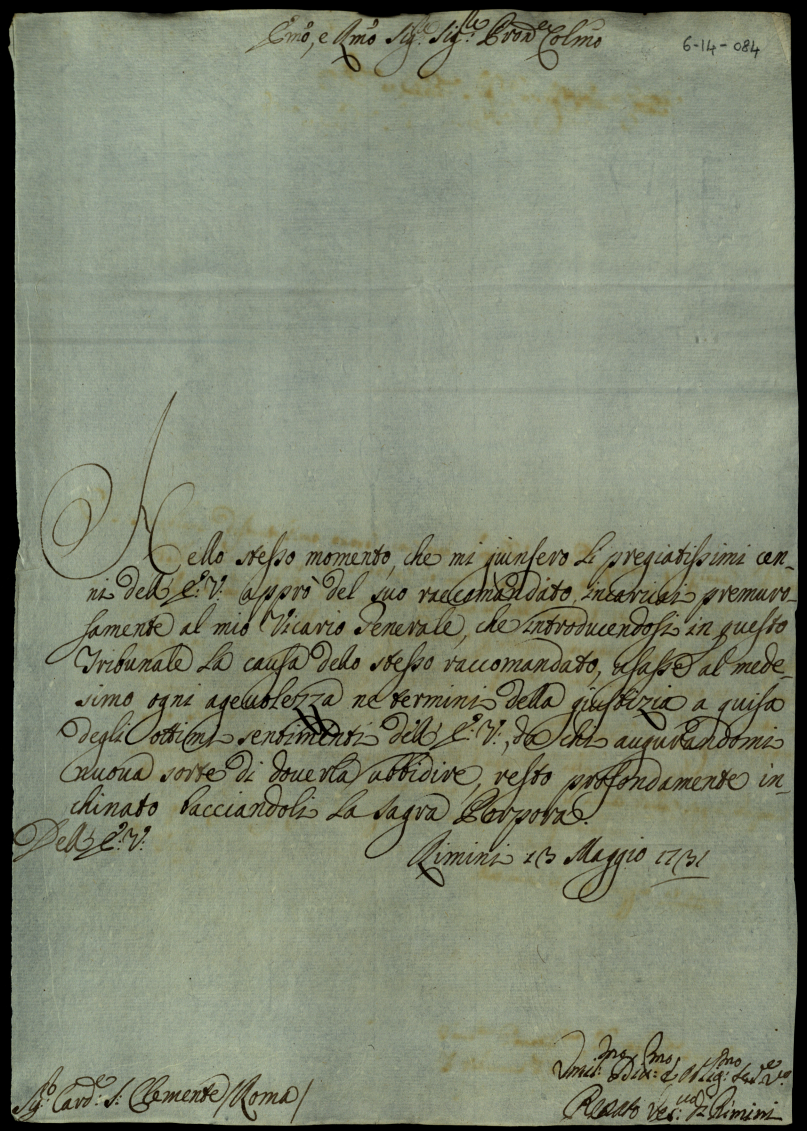 Emo, e Rmo Sig.r Sig.r Pron Colmo
6-14-084
Nello stesso momento, che mi giunsero li pregiatissimi cen-
ni dell'E.a V.a appro del suo raccomandato, incaricai premuro-
samente al mio Vicario Generale, che introducendosi in questo
Tribunale la causa dello stesso raccomandato, usasse al mede-
simo ogni agevolezza ne termini della giustizia a guisa
degli ottimi sentimenti dell'E.a V.a, da chi augurandomi
nuova sorte di doverla ubbidire, resto profondamente in-
chinato bacciandoli la sagra Porpora.
Dell'E.a V.a
Rimini 13 Maggio 1731
Umil.mo Div.mo ed Oblig.mo Ser.re V.o
Renato Ves.vo di Rimini
Sig.r Card.e S: Clemente /Roma/